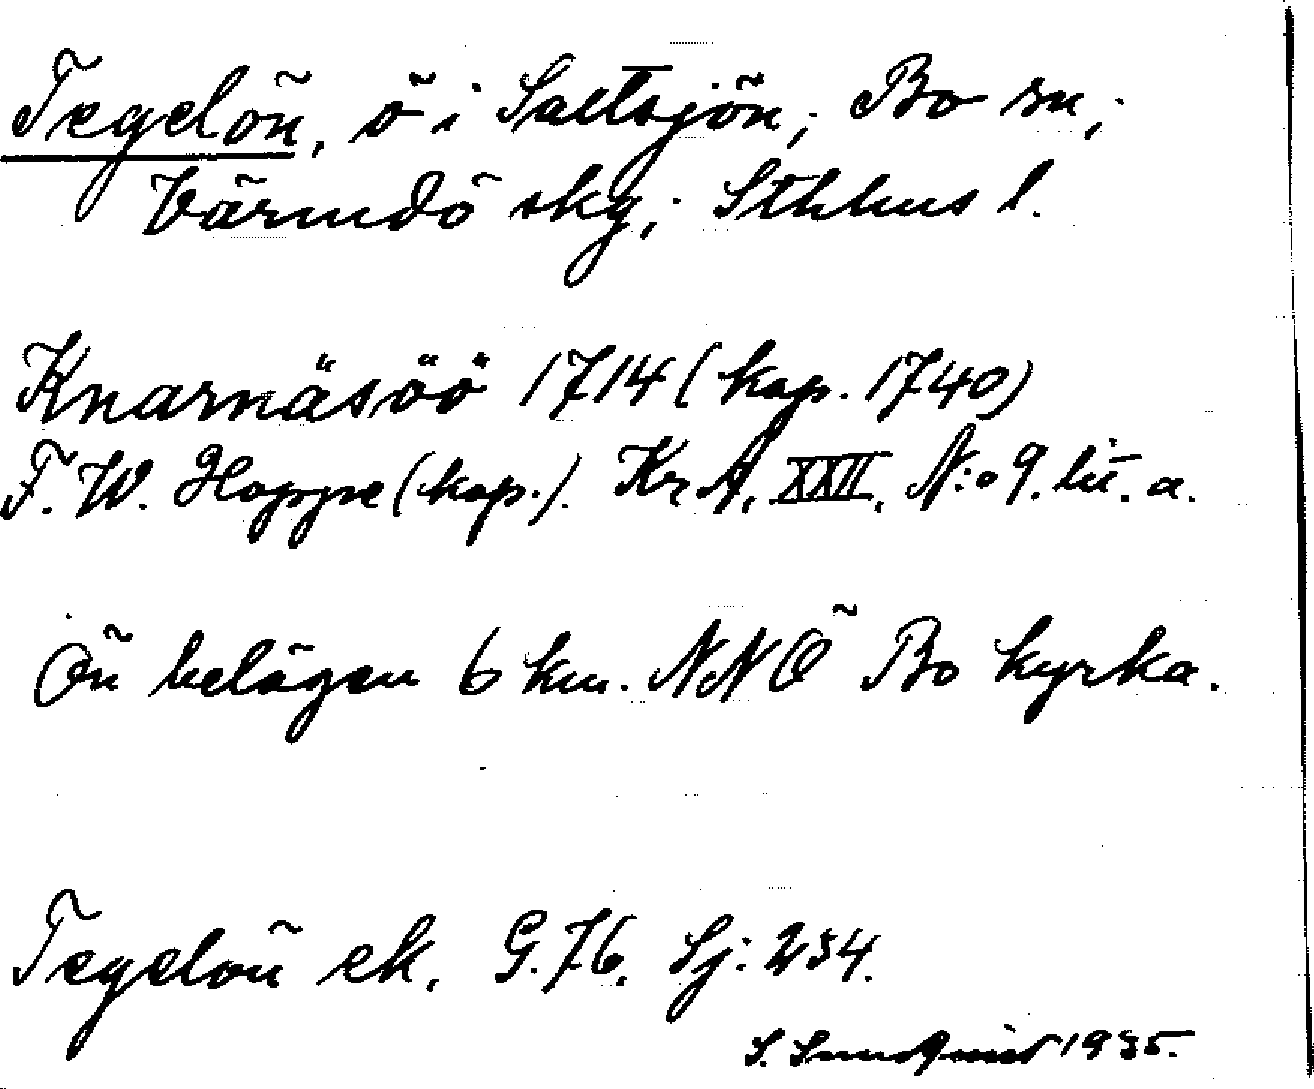 Tegelön, ö i Saltsjön; Bo sn;
Värmdö skg; Sthlms l.
Knarnäsöö 1714 (kop. 1740)
F. W. Hoppe (kop.). Kr A. XXII. N:o 9. lit. a.
Ön belägen 6 km. NNÖ Bo kyrka.
Tegelön ek. G. 76. Sj: 234.
S. 1935.